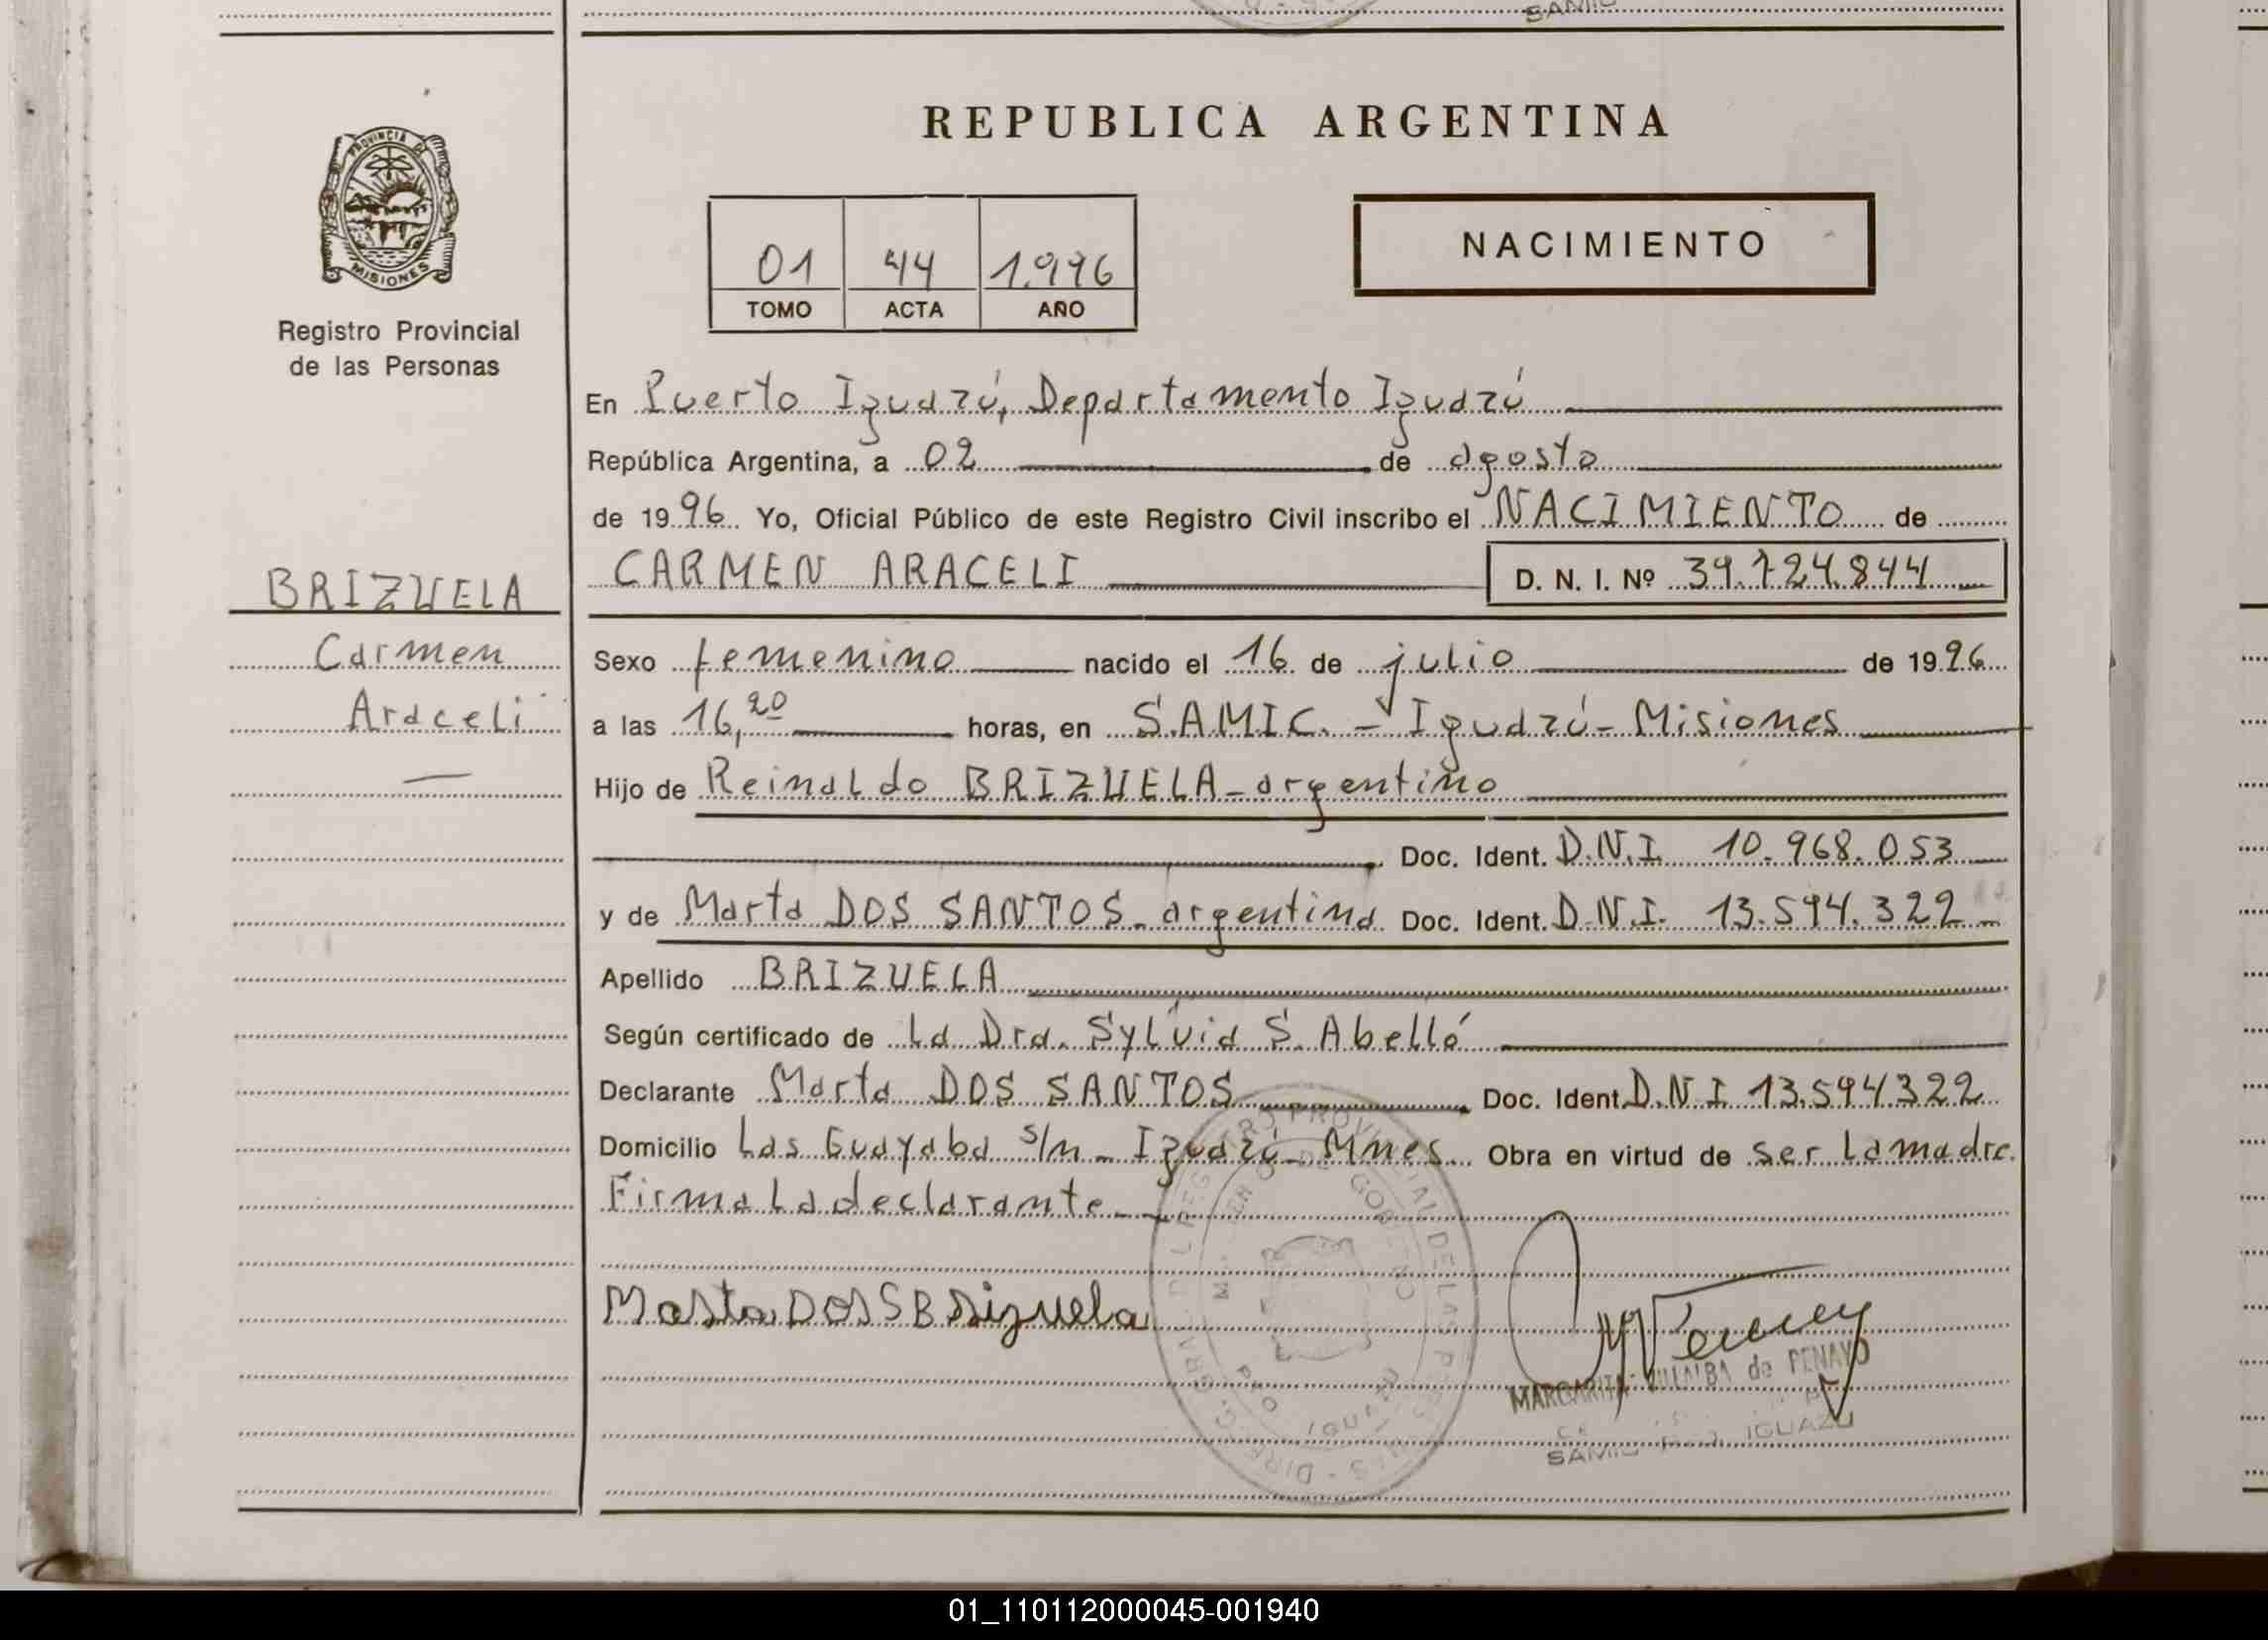 SAMIC
REPUBLICA ARGENTINA
PROVINCIA DE
MISIONES
Registro Provincial
de las Personas
01 44 1.996
TOMO ACTA AÑO
NACIMIENTO
En Puerto Iguazú, Departamento Iguazú
República Argentina, a 02 de agosto
de 1996 Yo, Oficial Público de este Registro Civil inscribo el NACIMIENTO de
CARMEN ARACELI D. N. I. Nº 39.724.844
BRIZUELA
Carmen
Araceli
Sexo femenino nacido el 16 de julio de 1996
a las 16,20 horas, en S.A.M.I.C. - Iguazú - Misiones
Hijo de Reinaldo BRIZUELA - argentino
Doc. Ident. D.N.I. 10.968.053
y de Marta DOS SANTOS - argentina Doc. Ident. D.N.I. 13.594.322
Apellido BRIZUELA
Según certificado de la Dra. Sylvia S. Abelló
Declarante Marta DOS SANTOS Doc. Ident. D.N.I 13.594.322
Domicilio Las Guayaba s/n - Iguazú - Mnes. Obra en virtud de ser la madre.
Firma la declarante.
Marta DOS S Brizuela
MARGARITA VILLALBA de PENAYO
SAMIC IGUAZU
01_110112000045-001940